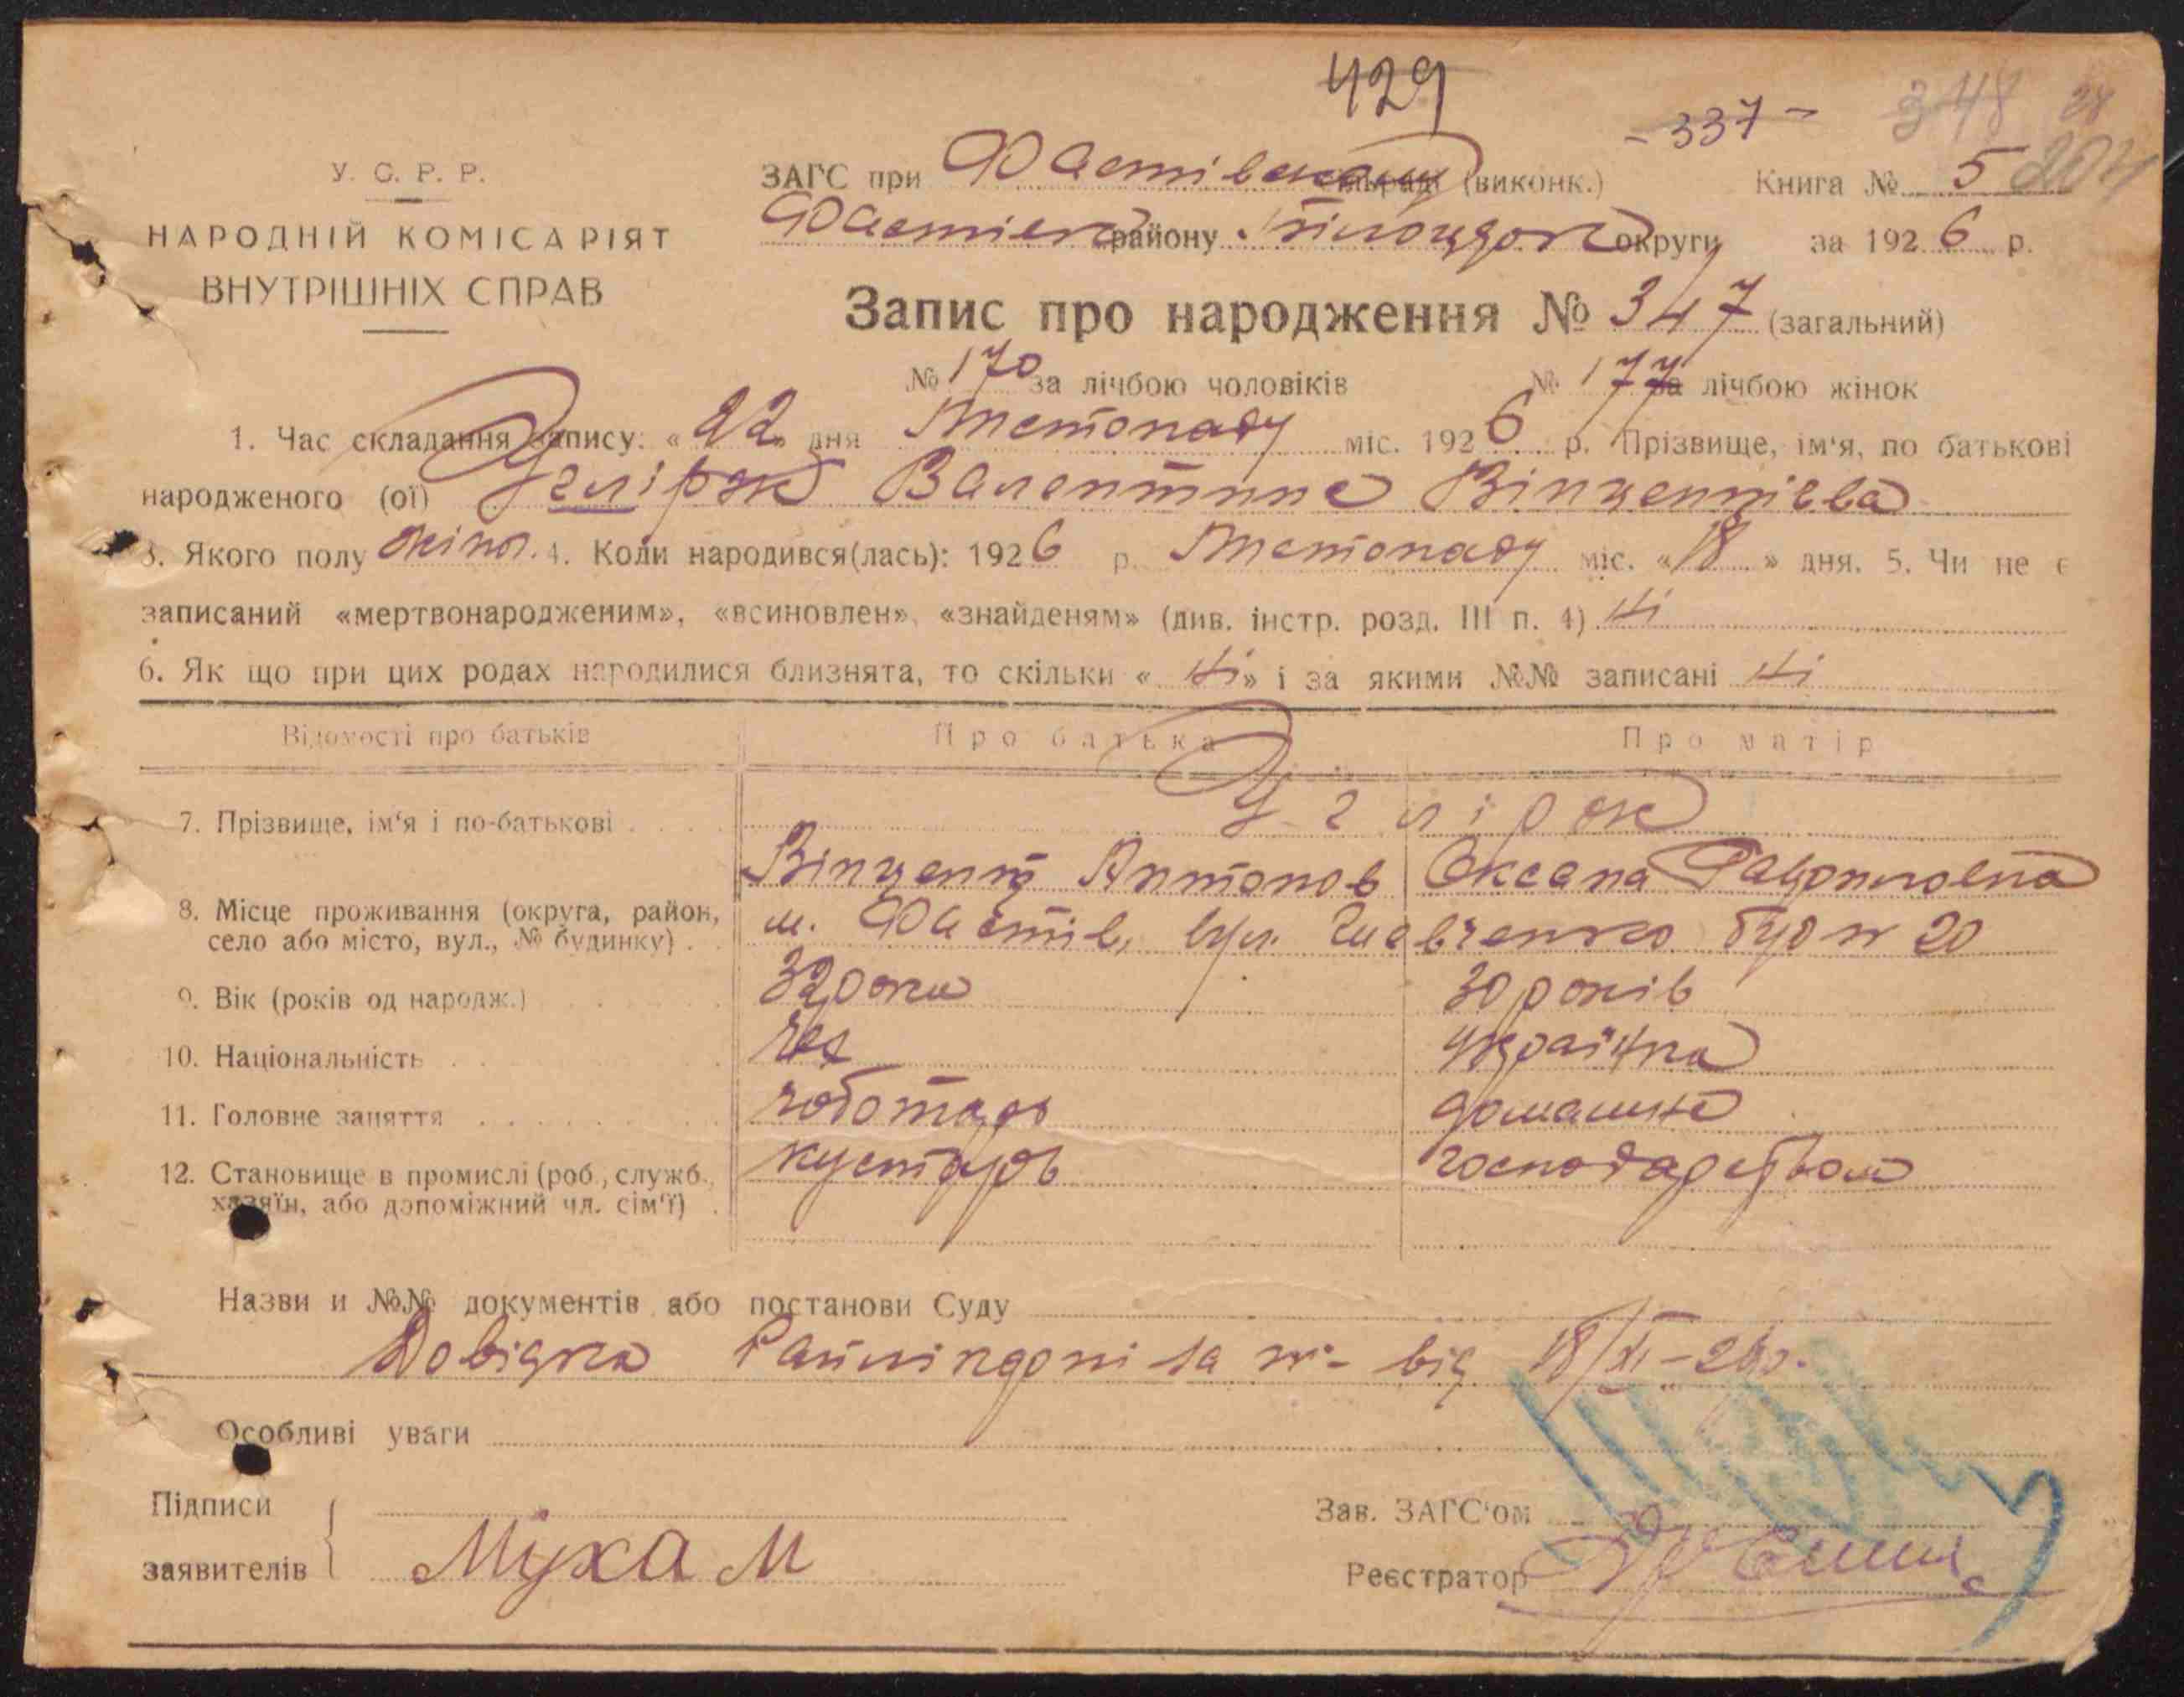 429
- 337 - 348 28
У. С. Р. Р.
НАРОДНІЙ КОМІСАРІЯТ
ВНУТРІШНІХ СПРАВ
ЗАГС при Фастівському (виконк.) Книга № 5
Фастівськ району Білоцерк округи за 1926 р.
Запис про народження № 347 (загальний)
№ 170 за лічбою чоловіків № 177 за лічбою жінок
1. Час складання запису: «22» дня Листопаду міс. 1926 р. Прізвище, ім'я, по батькові
народженого (ої) Валентина Вінцентієва
3. Якого полу жіноч. 4. Коли народився(лась): 1926 р. Листопаду міс. «18» дня. 5. Чи не є
записаний «мертвонародженим», «всиновлен», «знайденям» (див. інстр. розд. III п. 4) Ні
6. Як що при цих родах народилися близнята, то скільки «Ні» і за якими №№ записані Ні
Відомості про батьків Про батька Про матір
7. Прізвище, ім'я і по-батькові
Вінцент Антонов Оксана
8. Місце проживання (округа, район, село або місто, вул., № будинку) м. Фастів, вул. Шевченко буд № 20
9. Вік (років од народж.) 32 роки 30 років
10. Національність чех українка
11. Головне заняття чоботарь домашне
12. Становище в промислі (роб., служб., хазяїн, або допоміжний чл. сім'ї) кустарь господарством
Назви и №№ документів або постанови Суду
Довідка за № - від 18/XI-26р.
Особливі уваги
Підписи
заявителів Муха М
Зав. ЗАГС'ом
Реєстратор